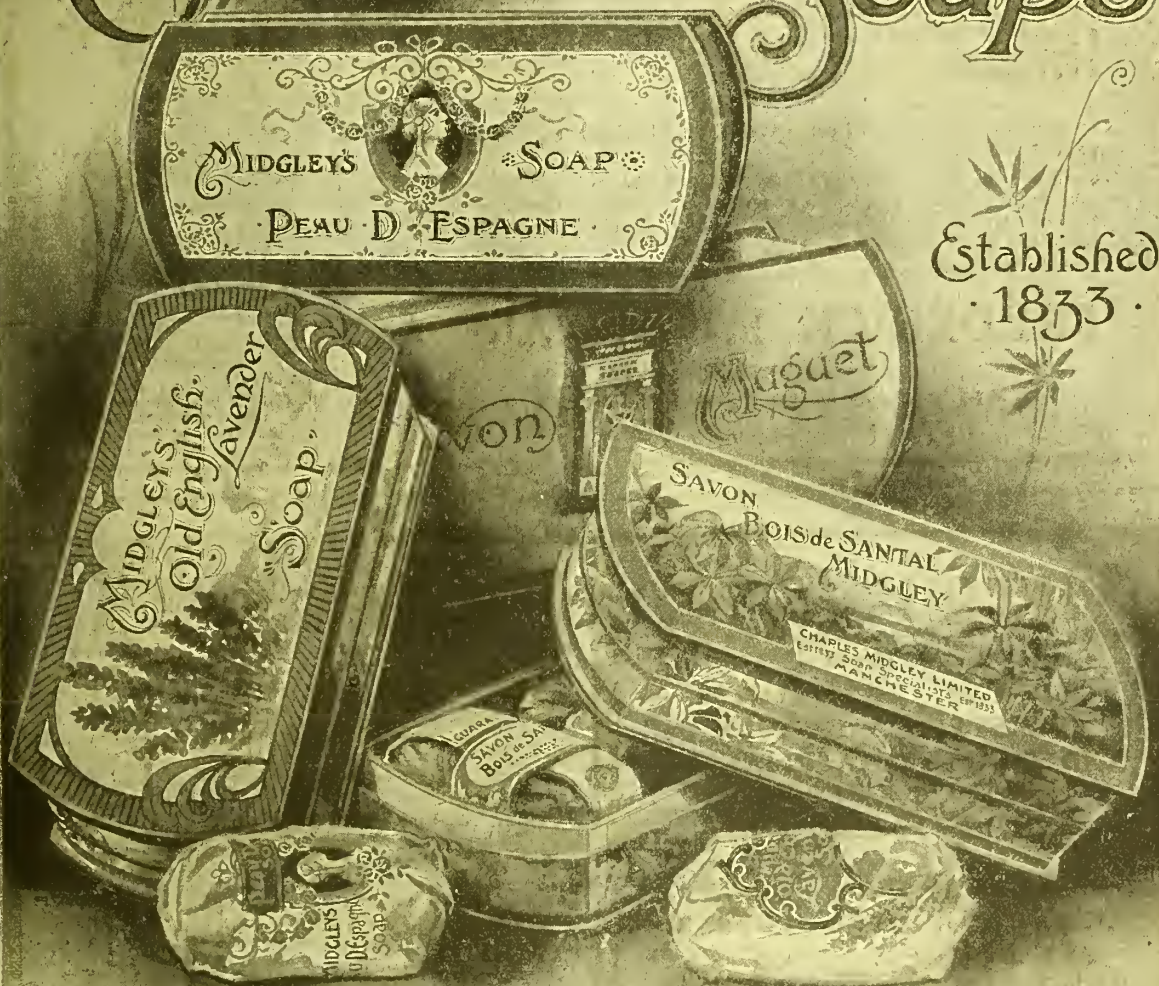 Soaps
MIDGLEY'S SOAP
PEAU D ESPAGNE
Established
· 1833 ·
Muguet
von
MIDGLEY'S
Old English
Lavender
Soap
SAVON
BOIS de SANTAL
MIDGLEY
CHARLES MIDGLEY LIMITED
EXPRESS Soap Specialists EST 1833
MANCHESTER
SAVON
BOIS de SAN
MIDGLEYS
U D'ESPAGNE
SOAP